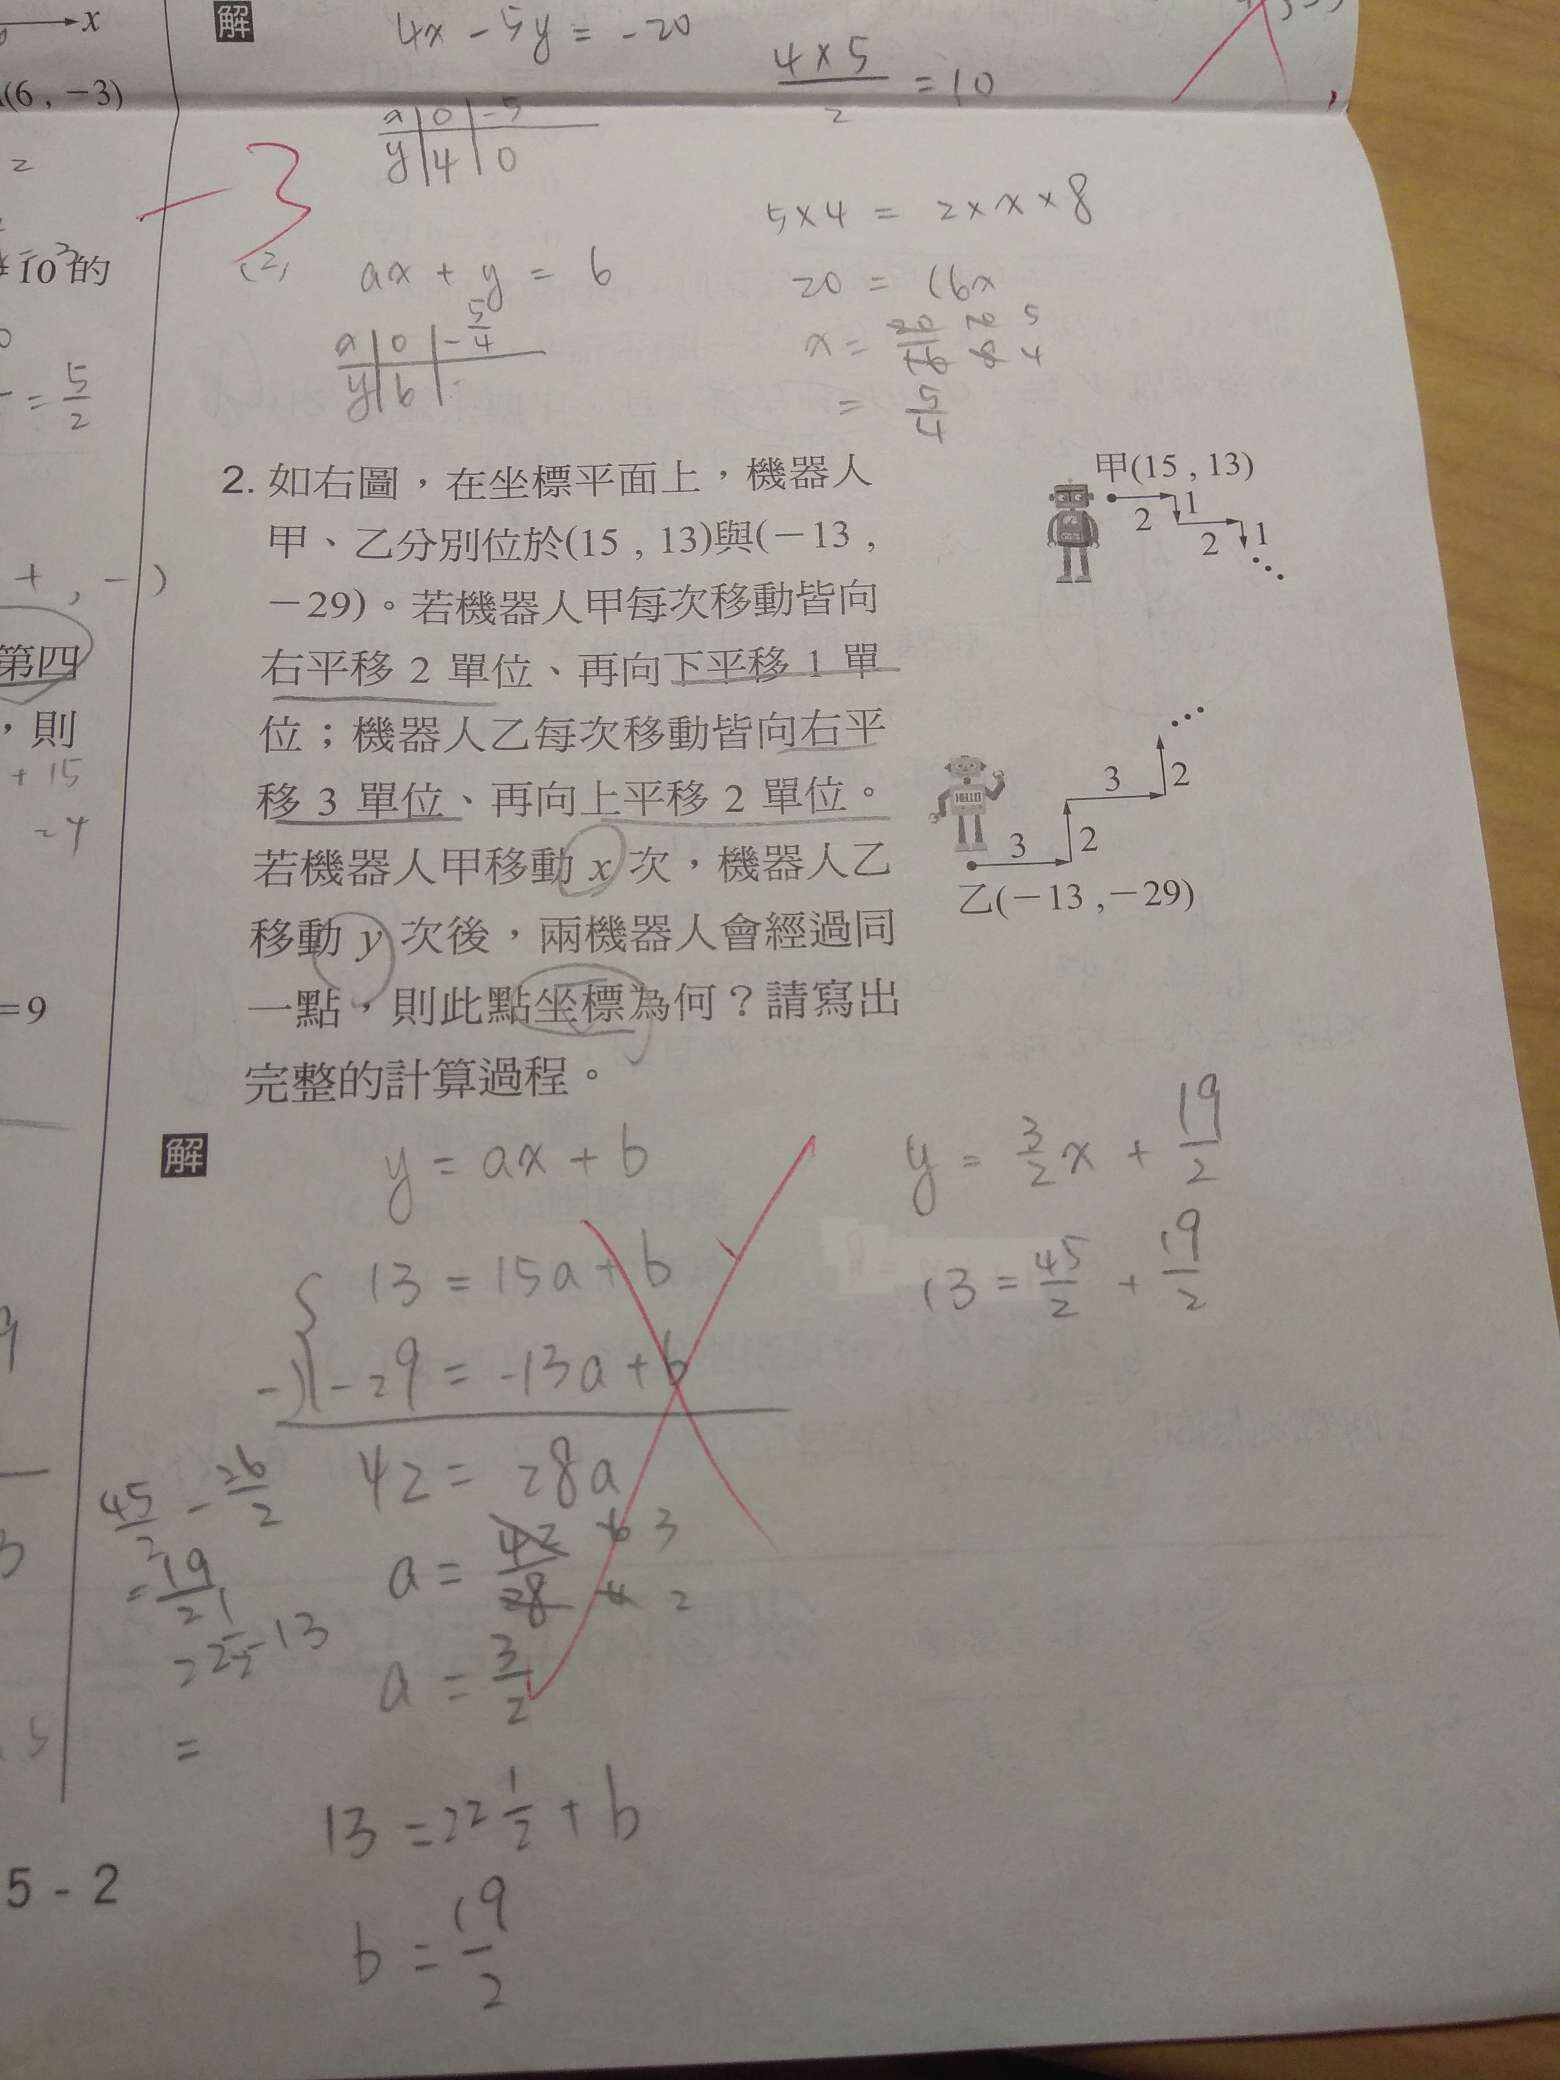 x
(6 , −3)
2
10³的
= 5/2
+ , − )
第四
，則
+ 15
= 9
5 - 2
解
4x − 5y = −20
4 × 5 / 2 = 10
x | 0 | −5
y | 4 | 0
−3
5 × 4 = 2 × x × 8
(2) ax + y = 6
20 = 16x
x | 0 | −5/4
y | 6 |
x = 20/16 5 4
= 5/4
2. 如右圖，在坐標平面上，機器人
甲、乙分別位於(15 , 13)與(−13 ,
−29)。若機器人甲每次移動皆向
右平移 2 單位、再向下平移 1 單
位；機器人乙每次移動皆向右平
移 3 單位、再向上平移 2 單位。
若機器人甲移動 x 次，機器人乙
移動 y 次後，兩機器人會經過同
一點，則此點坐標為何？請寫出
完整的計算過程。
甲(15 , 13)
2
1
2
1
HELLO
3
2
3
2
乙(−13 ,−29)
解
y = ax + b
13 = 15a + b
−) −29 = −13a + b
42 = 28a
a = 42/28 6 3 4 2
a = 3/2
13 = 22 1/2 + b
b = 19/2
45/2 − 26/2
= 19/2
=
y = 3/2 x + 19/2
13 = 45/2 + 19/2